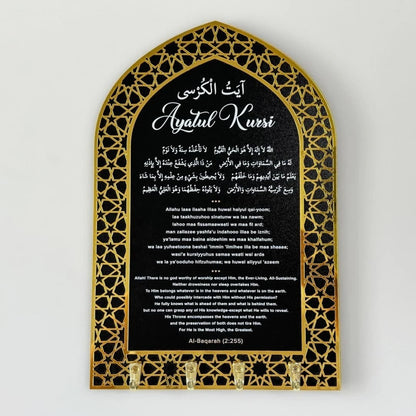 آيَتُ الْكُرْسِى
Ayatul Kursi
اللهُ لَا إِلٰهَ إِلَّا هُوَ الْحَيُّ الْقَيُّومُ لَا تَأْخُذُهُ سِنَةٌ وَلَا نَوْمٌ
لَهُ مَا فِي السَّمَاوَاتِ وَمَا فِي الْأَرْضِ مَنْ ذَا الَّذِي يَشْفَعُ عِنْدَهُ إِلَّا بِإِذْنِهِ
يَعْلَمُ مَا بَيْنَ أَيْدِيهِمْ وَمَا خَلْفَهُمْ وَلَا يُحِيطُونَ بِشَيْءٍ مِنْ عِلْمِهِ إِلَّا بِمَا شَاءَ
وَسِعَ كُرْسِيُّهُ السَّمَاوَاتِ وَالْأَرْضَ وَلَا يَئُودُهُ حِفْظُهُمَا وَهُوَ الْعَلِيُّ الْعَظِيمُ
Allahu laaa ilaaha illaa huwal haiyul qai-yoom;
laa taakhuzuhoo sinatunw wa laa nawm;
lahoo maa fissamaawaati wa maa fil ard;
man zallazee yashfa'u indahooo illaa be iznih;
ya'lamu maa baina aideehim wa maa khalfahum;
wa laa yuheetoona beshai 'immin 'ilmihee illa be maa shaaae;
wasi'a kursiyyuhus samaa waati wal arda
wa la ya'ooduho hifzuhumaa; wa huwal aliyyul 'azeem
Allah! There is no god worthy of worship except Him, the Ever-Living, All-Sustaining.
Neither drowsiness nor sleep overtakes Him.
To Him belongs whatever is in the heavens and whatever is on the earth.
Who could possibly intercede with Him without His permission?
He fully knows what is ahead of them and what is behind them,
but no one can grasp any of His knowledge-except what He wills to reveal.
His Throne encompasses the heavens and the earth,
and the preservation of both does not tire Him.
For He is the Most High, the Greatest.
Al-Baqarah (2:255)